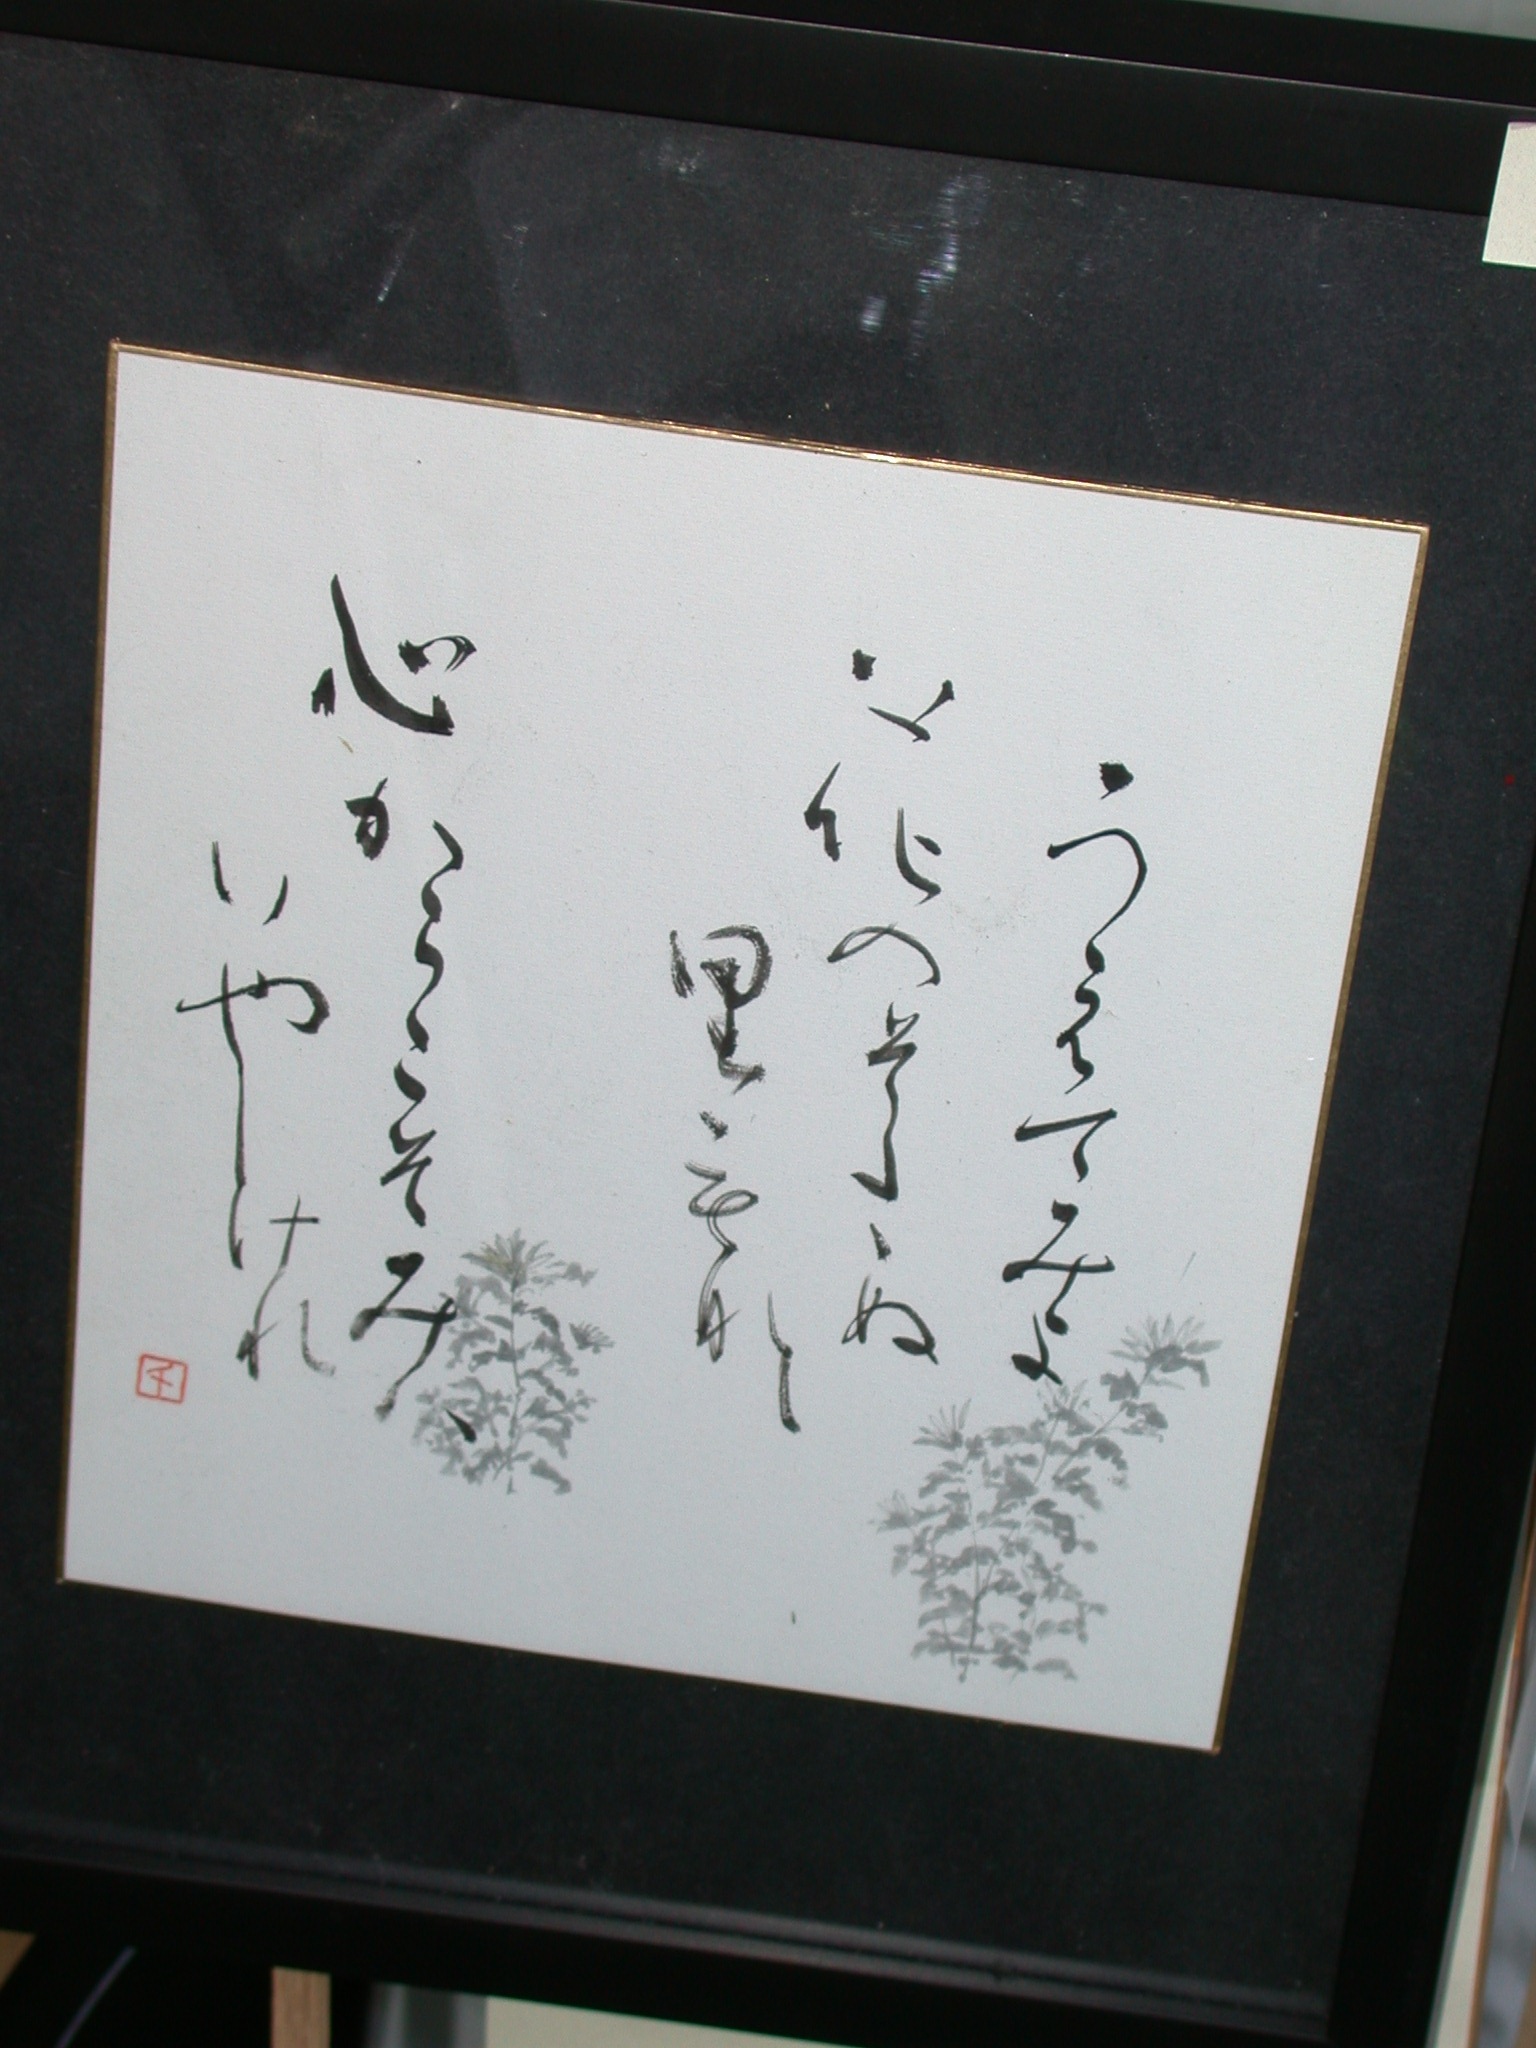 うゑてみよ
花のそたゝぬ
里もなし
心からこそ身ハ
いやしけれ